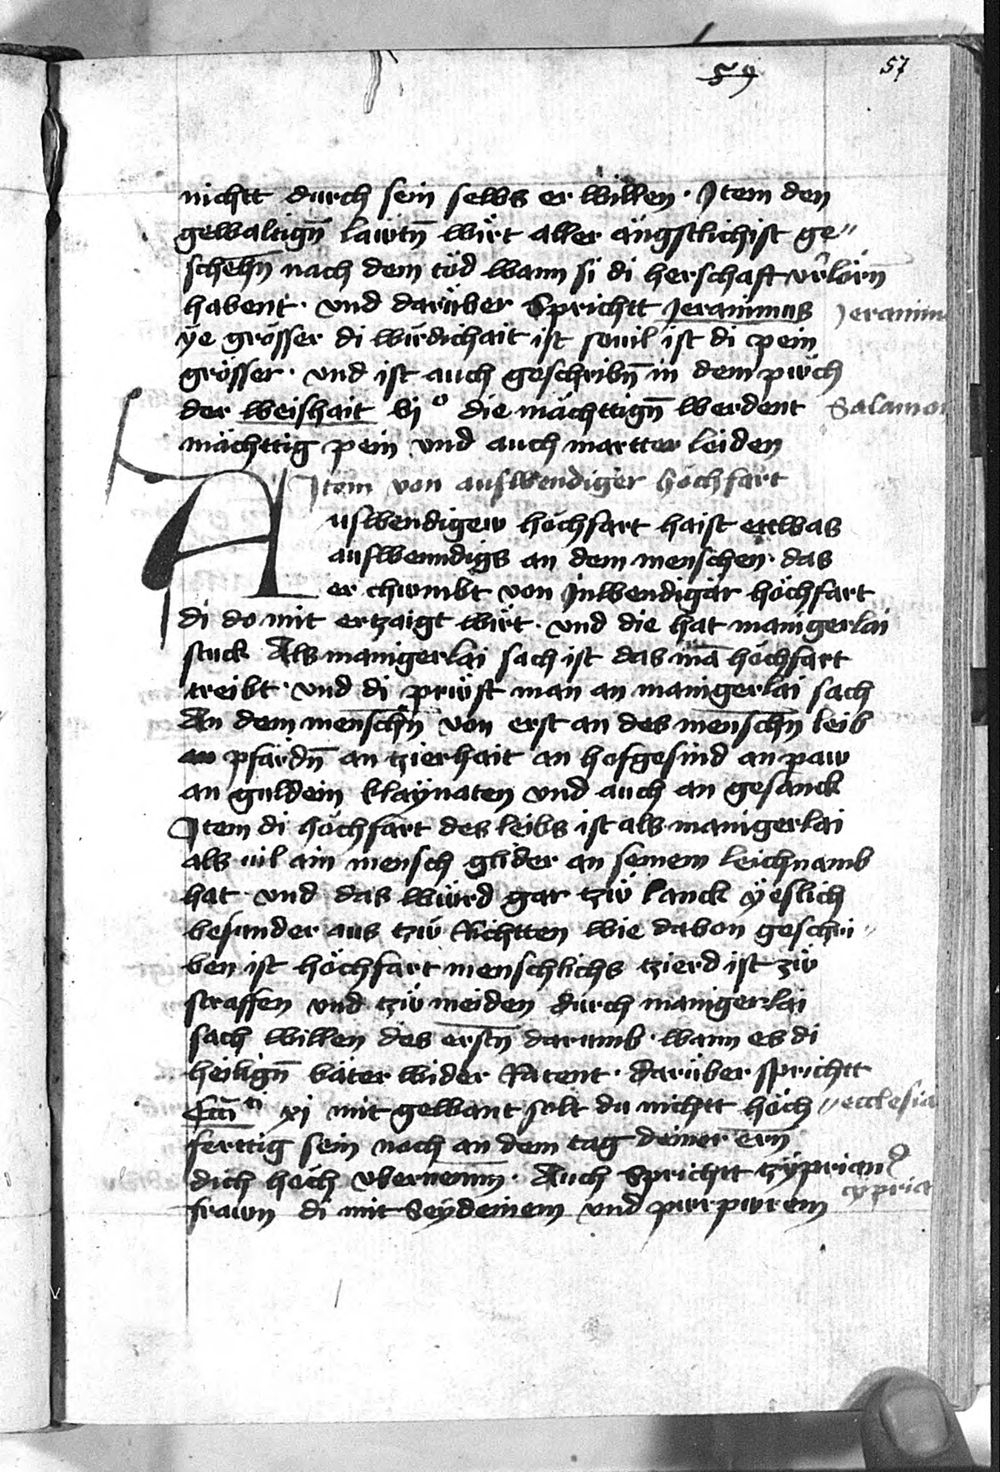 59
57
nichtt durch sein selbs er willen · Item den
gewaltign̄ lawtn̄ wirt aller ängstlichist ge〃
schehn̄ nach dem töd wann si di herschaft v̂rlorn̄
habent · vnd darüber Sprichtt Jeranimus
Jeranim
ye grösser di wirdichait ist souil ist di pein
grösser · vnd ist auch geschribn̄ in dem půch
der weishait vi° die mächttign̄ werdent
Salamon
mächttig pein vnd auch martter leiden
Item von auswendiger höchfart
Auswendigew höchfart haist ettwas
auswenndigs an dem menschen · das
er chumbt von Inwendigär höchfart
di do mit ertzaigt wirt · vnd die hat manigerlai
stuck Als manigerlai sach ist das mā höchfart
treibt · vnd di prüfst man an manigerlai sach
An dem menschn̄ von erst an des menschn̄ leib
an pfärdn̄ an tzierhait an hofgesind an paw
an guldein klaynaten vnd auch an gesanck
Item di höchfart des leibs ist als manigerlai
als uil ain mensch glider an seinem leichnamb
hat · vnd das würd gar tzů lanck ÿeslich
besunder aus tzů Richtten wie dabon geschri〃
ben ist höchfart menschlichs tzierd ist zů
straffen vnd tzů meiden durch manigerlai
sach willen des erstn̄ darumb · wann es di
heilign̄ väter wider Ratent · darüber sprichtt
xi mit gewant solt du nichtt höch〃
ecclesia
ferttig sein noch an dem tag deiner ern̄
dich hoch vbernemm̄ · Auch Sprichtt tzÿprian9
cypria
frawn di mit Seydeinem vnd purpurem